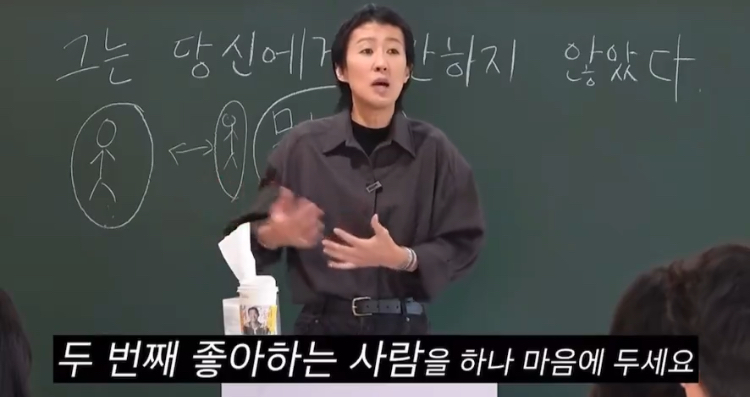 그는 당신에게 않았다.
두 번째 좋아하는 사람을 하나 마음에 두세요